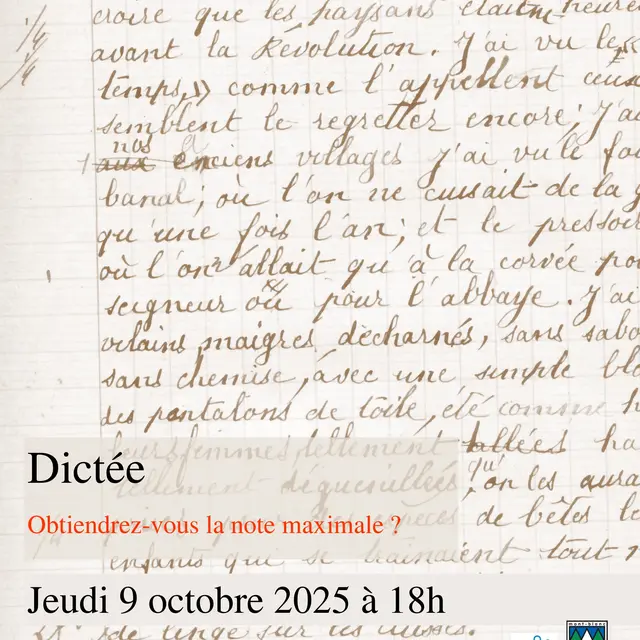 croire que les paysans étaient heure
avant la Révolution. J'ai vu le
temps, » comme l'appellent ceux
semblent le regretter encore; j'ai
nos
1/4
1/4
aux anciens villages j'ai vu le fou
banal; où l'on ne cuisait de la
qu'une fois l'an; et le pressoir
où l'on n'allait qu'à la corvée pou
seigneur où pour l'abbaye. J'ai
vilains maigres décharnés, sans sabo
sans chemise, avec une simple blo
des pantalons de toile, été comme h
leurs femmes tellement hallées ha
tellement déguenillées qu'on les aura
Dictée
Obtiendrez-vous la note maximale ?
espèces de bêtes le
enfants qui se traînaient tout n
Jeudi 9 octobre 2025 à 18h
de linge sur les cuisses.
mont-blanc